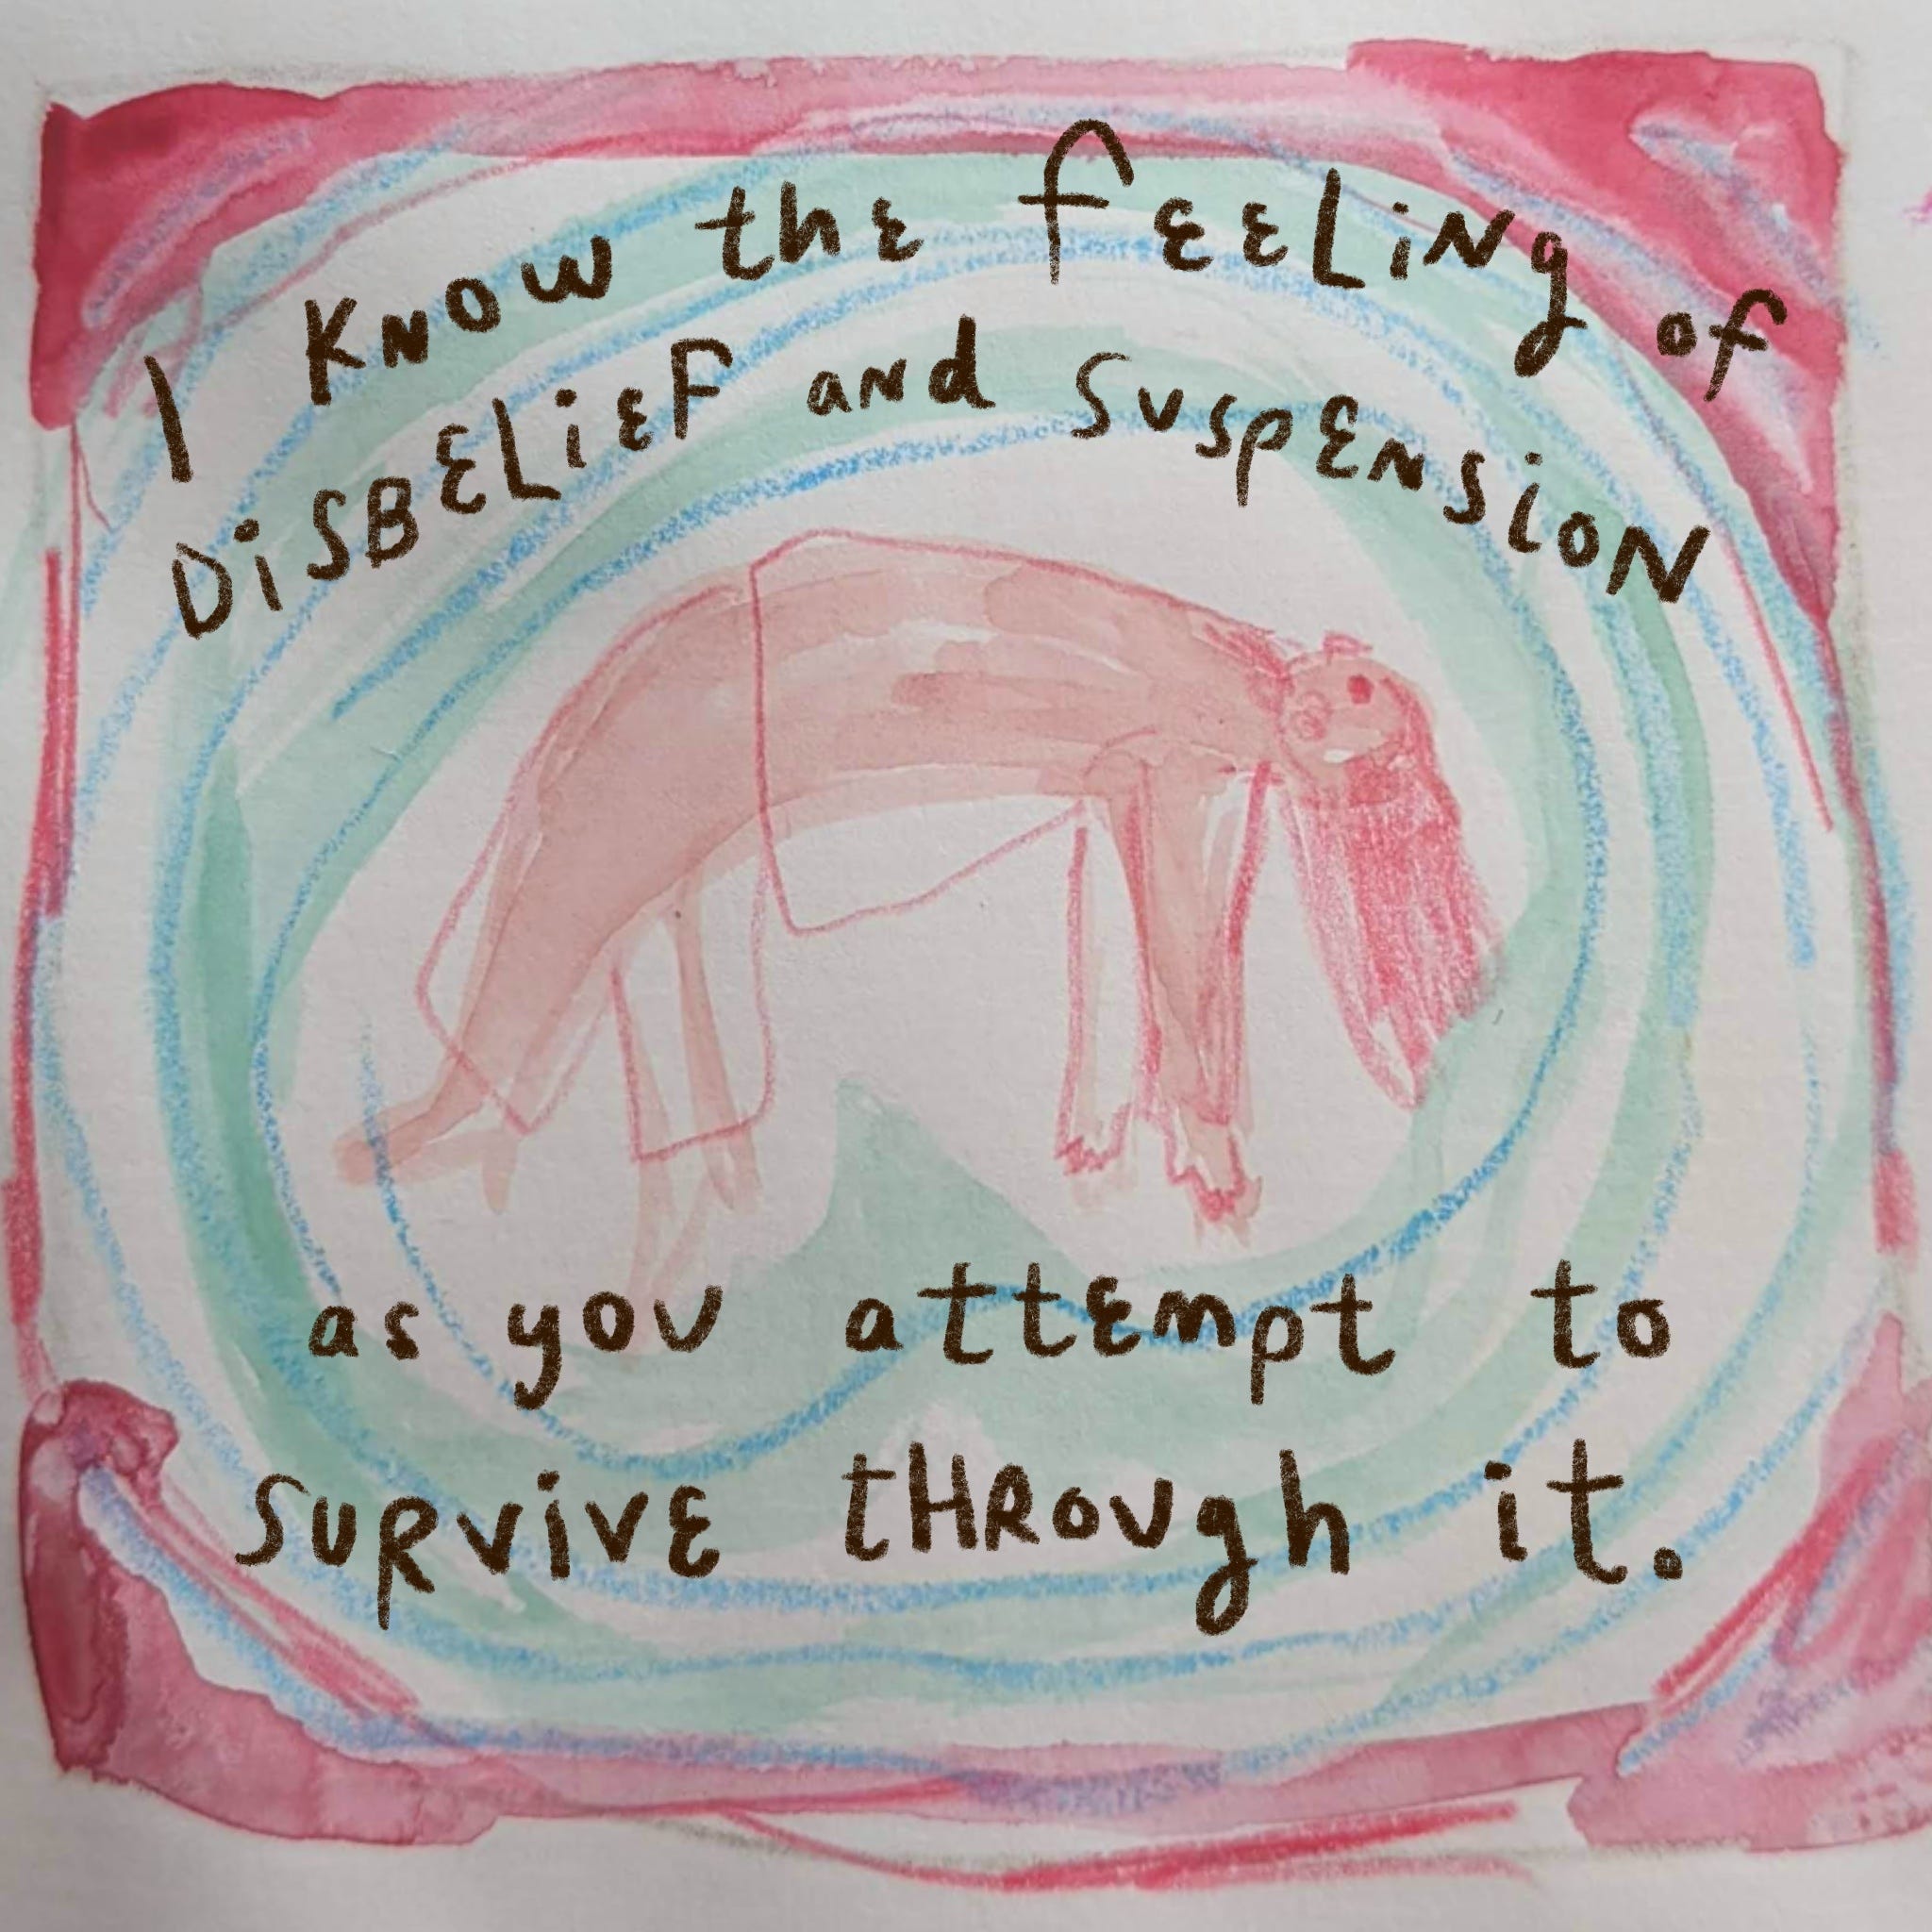 I KNOW the fEELiNg of
DiSBELiEF aNd SUSPENSiON
as you attEmpt to
SURViVE tHROUgh it.